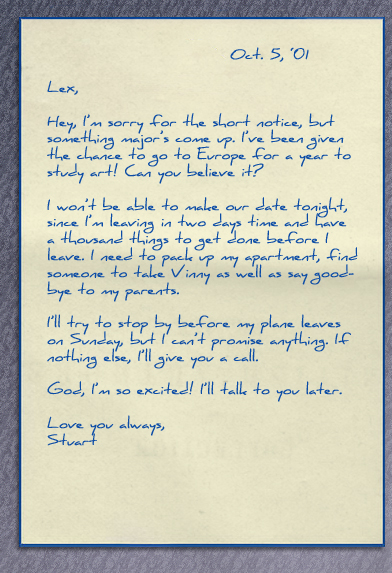 Oct. 5, '01
Lex,
Hey, I'm sorry for the short notice, but
something major's come up. I've been given
the chance to go to Europe for a year to
study art! Can you believe it?
I won't be able to make our date tonight,
since I'm leaving in two days time and have
a thousand things to get done before I
leave. I need to pack up my apartment, find
someone to take Vinny as well as say good-
bye to my parents.
I'll try to stop by before my plane leaves
on Sunday, but I can't promise anything. If
nothing else, I'll give you a call.
God, I'm so excited! I'll talk to you later.
Love you always,
Stuart